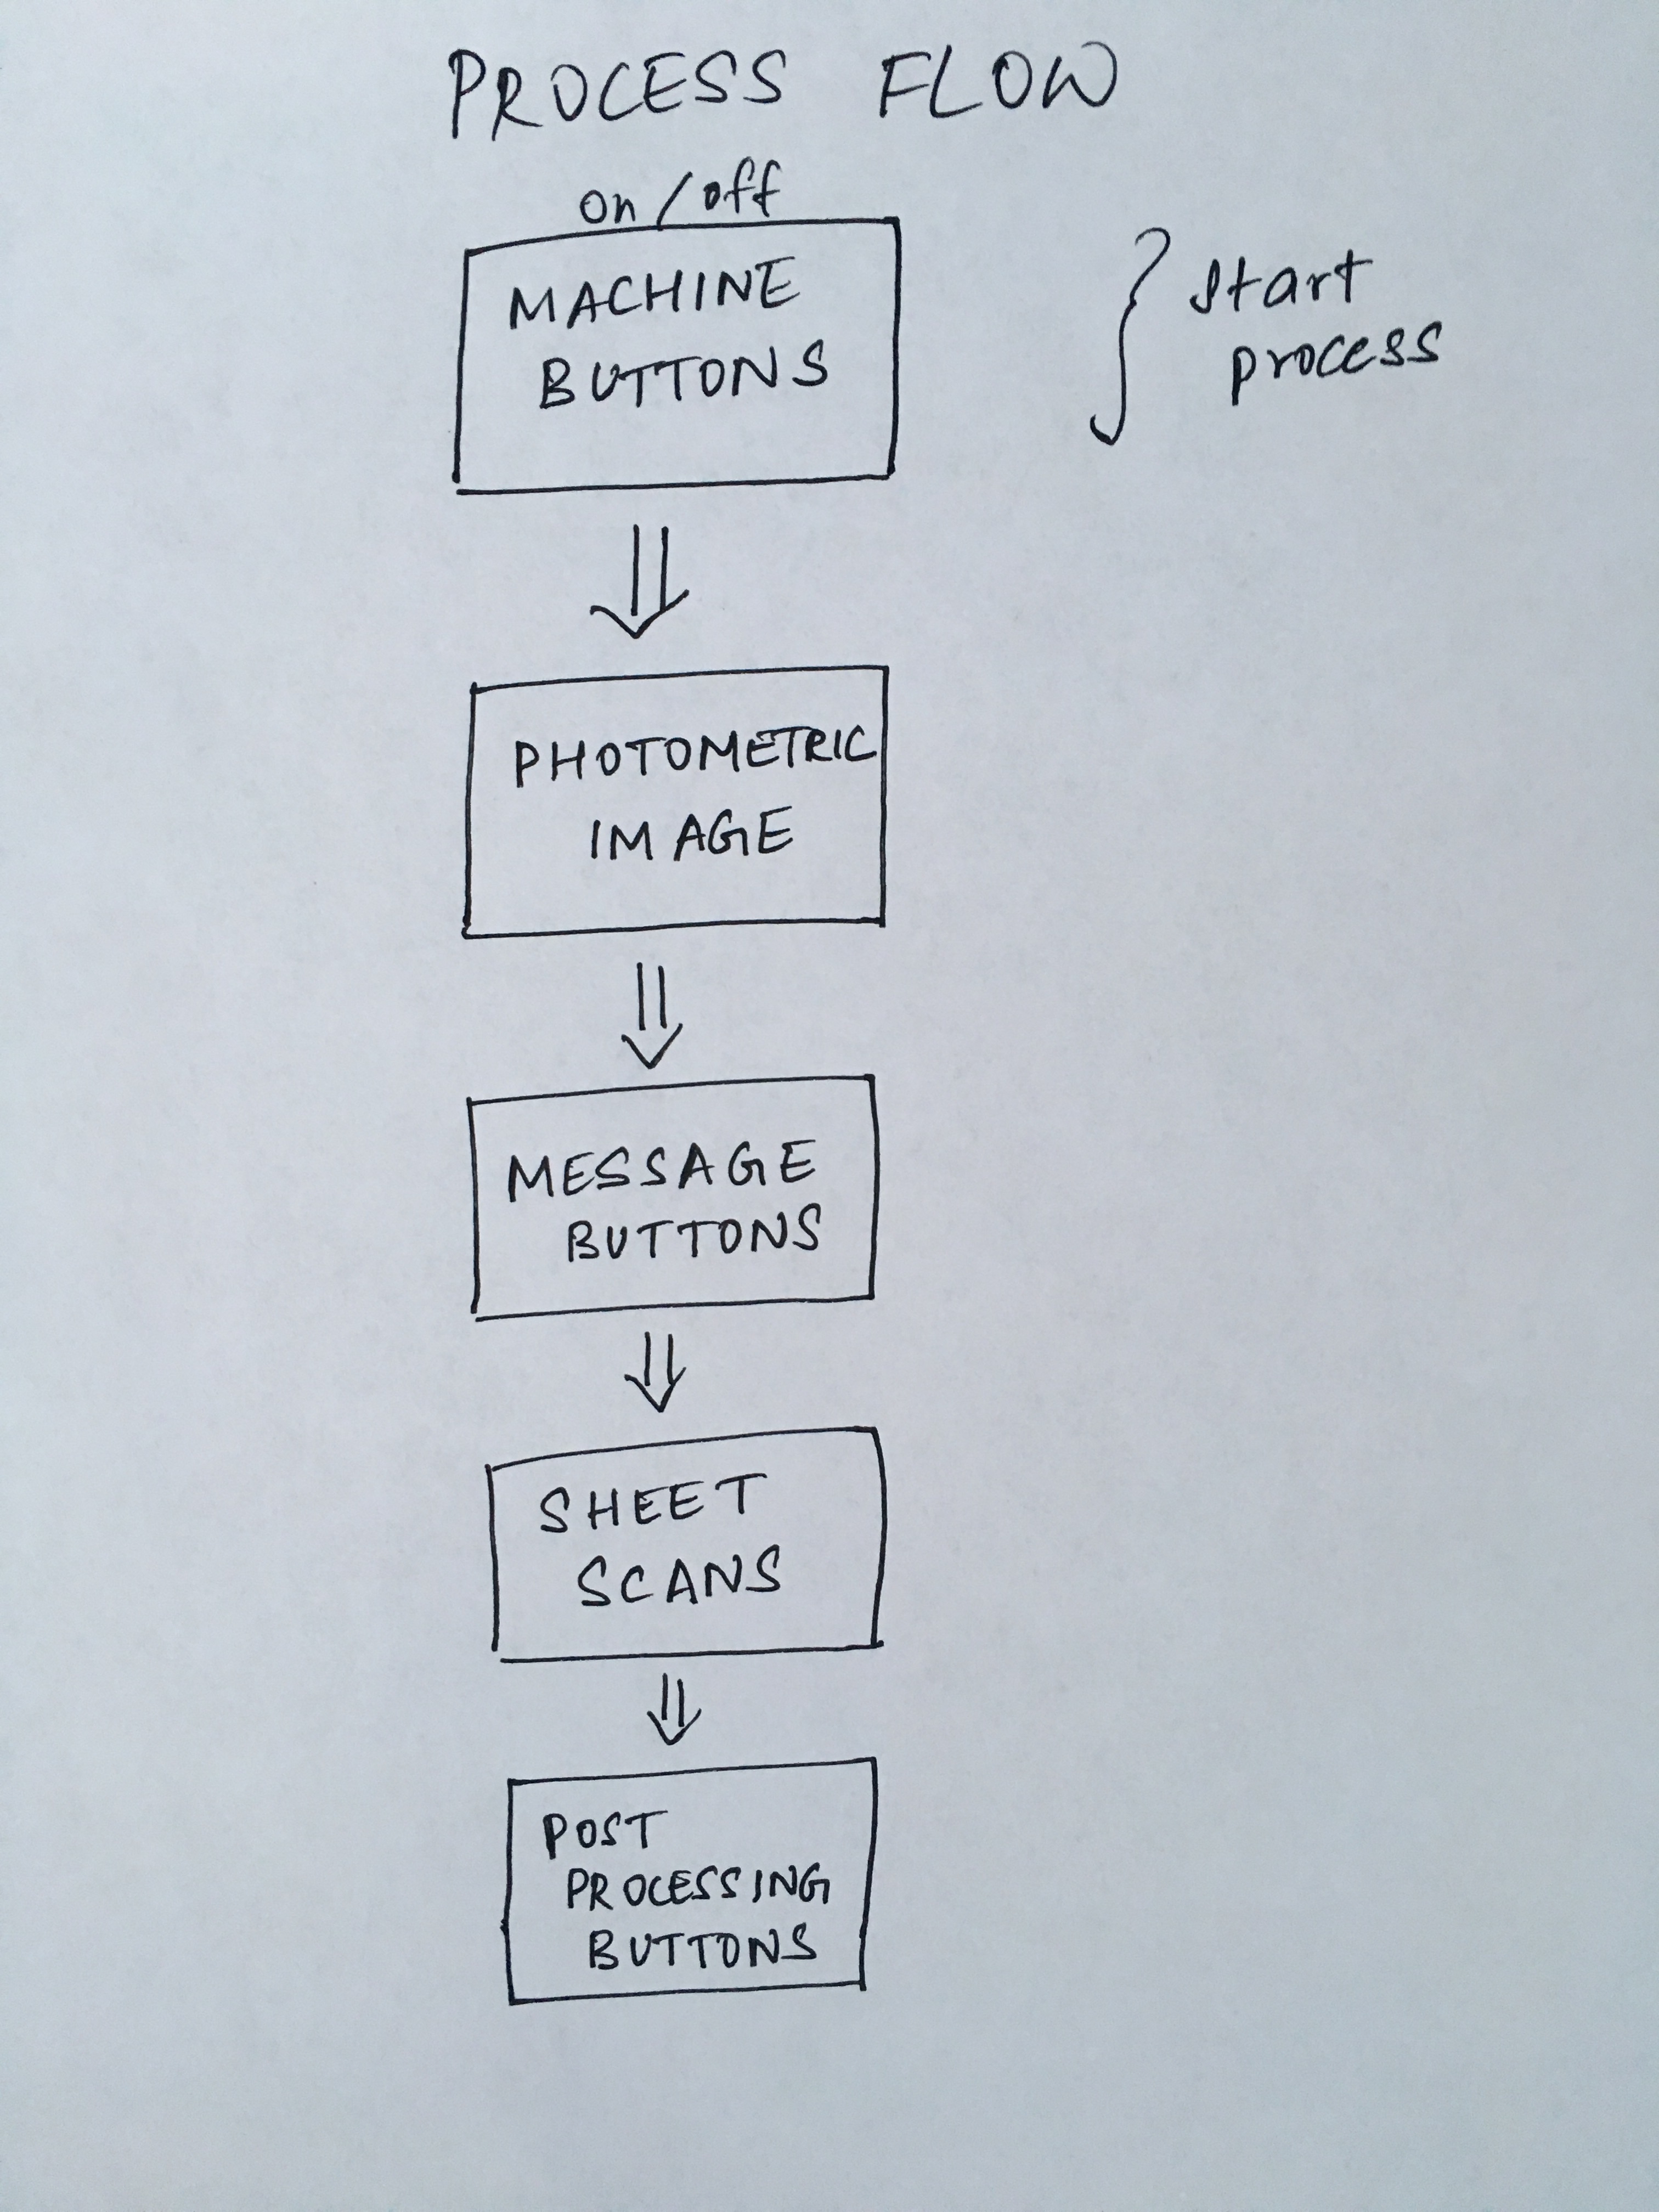 PROCESS FLOW
on/off
MACHINE
BUTTONS
start
process
PHOTOMETRIC
IMAGE
MESSAGE
BUTTONS
SHEET
SCANS
POST
PROCESSING
BUTTONS